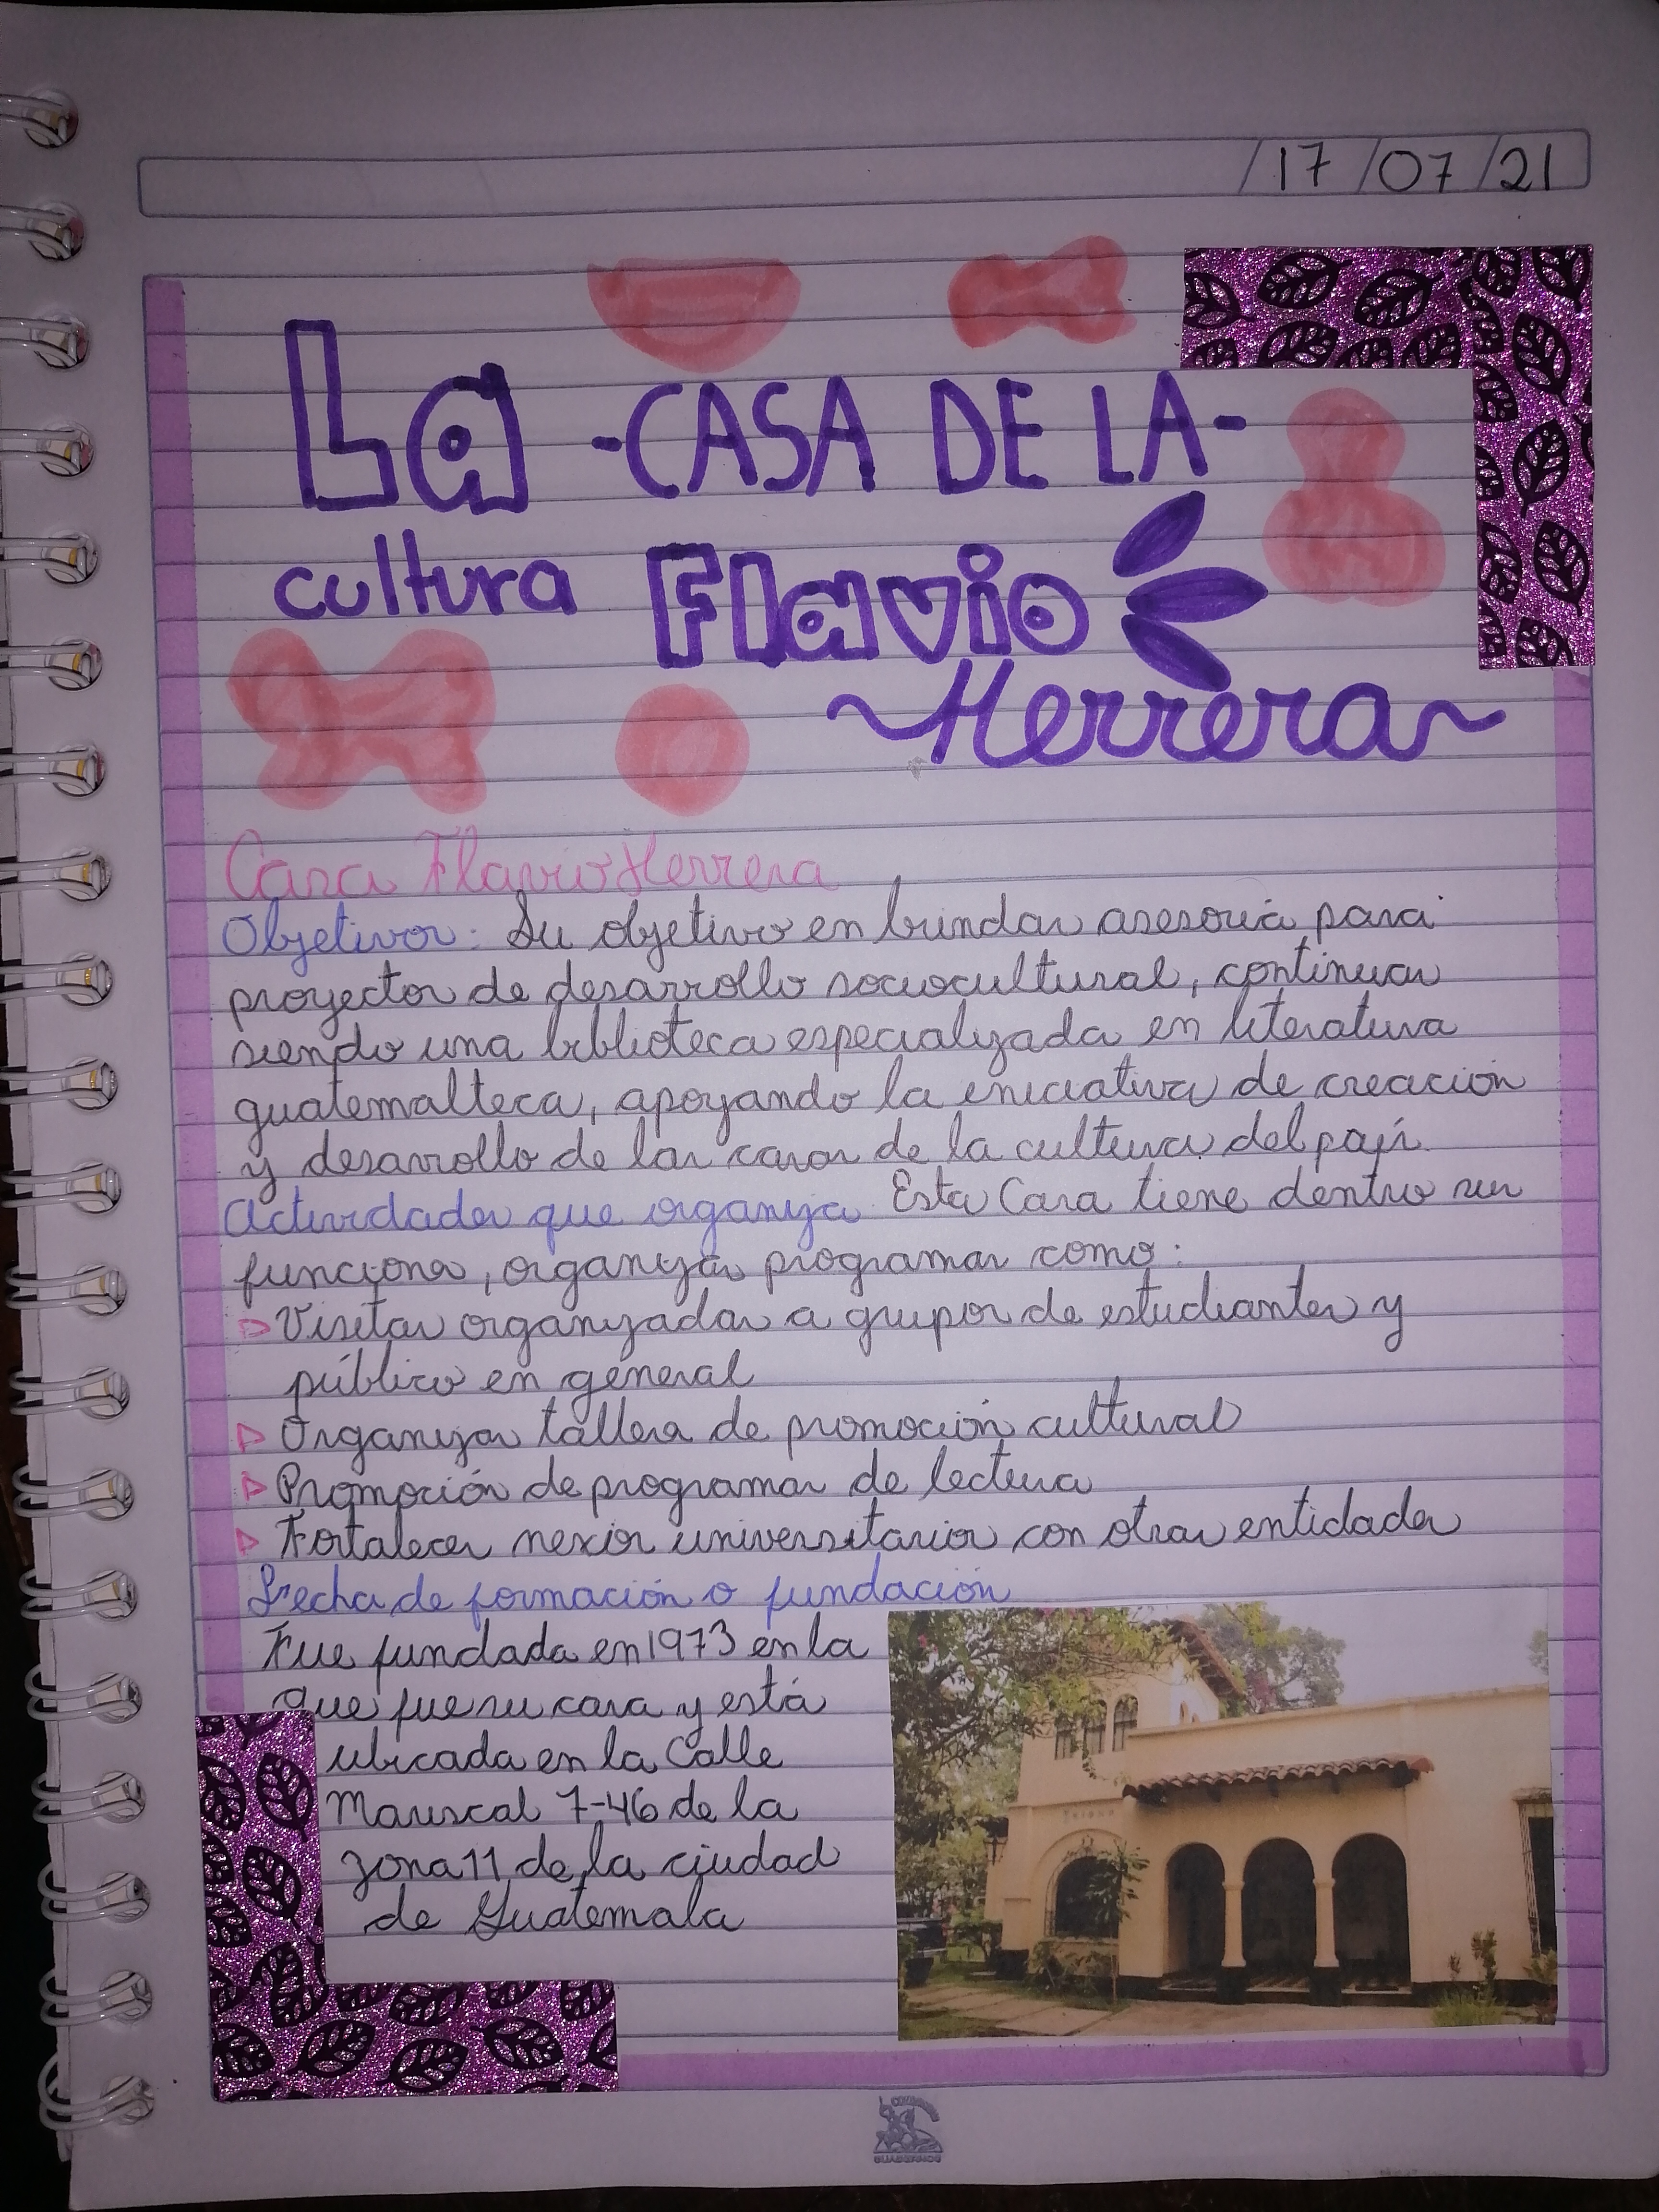 17/07/21
La -CASA DE LA-
cultura Flavio
~Herrera~
Casa Flavio Herrera
Objetivos: Su objetivo es brindar asesoría para
proyectos de desarrollo sociocultural, continuar
siendo una biblioteca especializada en literatura
guatemalteca, apoyando la iniciativa de creación
y desarrollo de las casas de la cultura del país.
Actividades que organiza Esta Casa tiene dentro sus
funciones, organizar programas como:
Visitas organizadas a grupos de estudiantes y
público en general
Organizar talleres de promoción cultural
Promoción de programas de lectura
Fortalecer nexos universitarios con otras entidades
Fecha de formación o fundación
Fue fundada en 1973 en la
que fue su casa y está
ubicada en la Calle
Mariscal 7-46 de la
zona 11 de la ciudad
de Guatemala